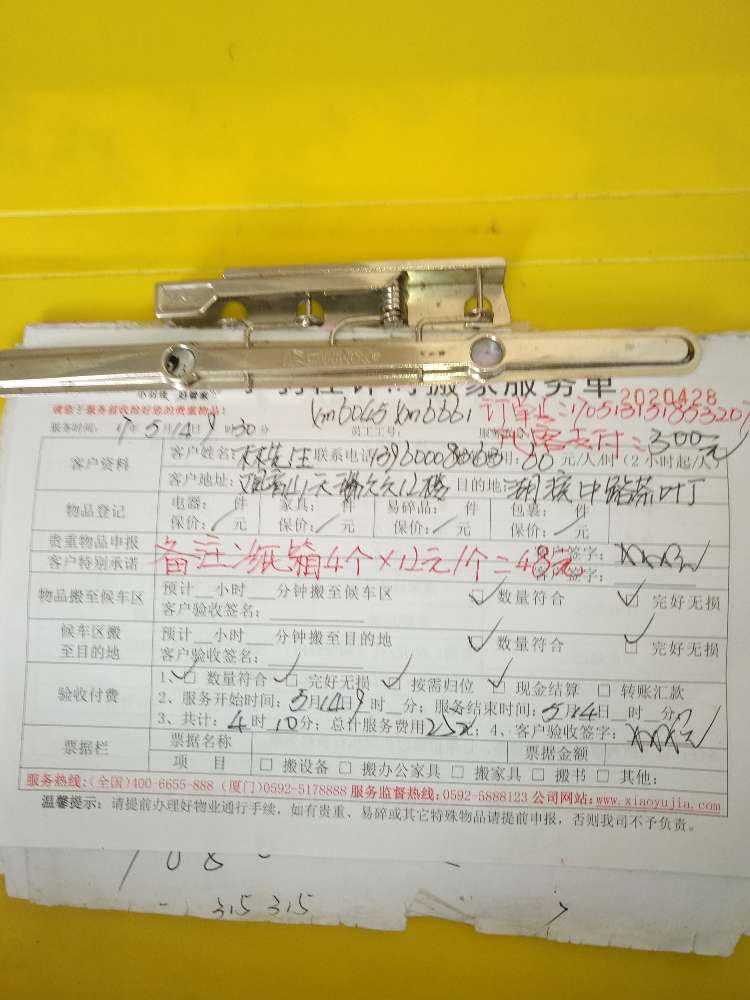 搬家服务单
2020428
请您于服务前收检好您的贵重物品!
xm6045 xm6661 订单上:
服务时间: 年5月14日 时30分 员工工号: 300元
客户资料
客户姓名: 先生 联系电话 费用: 60元/人/时(2小时起/人)
客户地址: 目的地:
物品登记
电器: 件 家具: 件 易碎品: 件 包裹: 件
保价: 元 保价: 元 保价: 元 保价: 元
贵重物品申报 客户签字:
客户特别承诺 备注:纸箱4个×12元/个=48元 客户签字:
物品搬至候车区
预计__小时__分钟搬至候车区 数量符合 完好无损
客户验收签名:
候车区搬至目的地
预计__小时__分钟搬至目的地 数量符合 完好无损
客户验收签名:
验收付费
1、数量符合 完好无损 按需归位 现金结算 转账汇款
2、服务开始时间:5月14日 时 分;服务结束时间:5月14日 时 分
3、共计:4时10分;总计服务费用 ;4、客户验收签字:
票据栏
票据名称 票据金额
项 目 搬设备 搬办公家具 搬家具 搬书 其他:
服务热线:(全国)400-6655-888 (厦门)0592-5178888 服务监督热线:0592-5888123 公司网站:www.xiaoyujia.com
温馨提示: 请提前办理好物业通行手续,如有贵重、易碎或其它特殊物品请提前申报,否则我司不予负责。
315 315